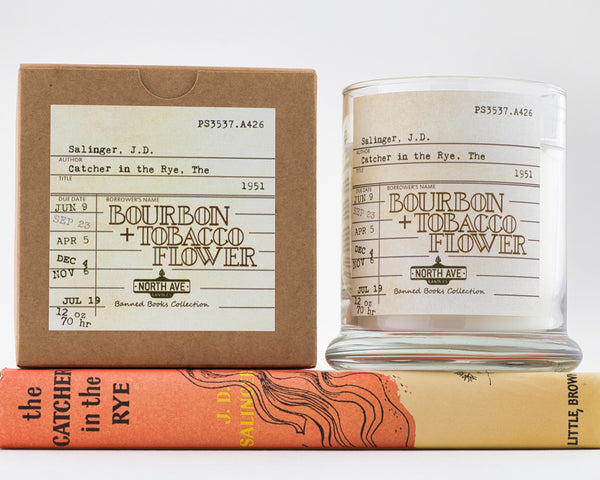 PS3537.A426
Salinger, J.D.
AUTHOR
Catcher in the Rye, The
TITLE
1951
DUE DATE
BORROWER'S NAME
JUN 9
SEP 23
APR 5
DEC 4
NOV 6
JUL 19
12 oz
70 hr
BOURBON
+ TOBACCO
FLOWER
NORTH AVE
CANDLES
Banned Books Collection
PS3537.A426
Salinger, J.D.
AUTHOR
Catcher in the Rye, The
TITLE
1951
DUE DATE
BORROWER'S NAME
JUN 9
SEP 23
APR 5
DEC 4
NOV 6
JUL 19
12 oz
70 hr
BOURBON
+ TOBACCO
FLOWER
NORTH AVE
CANDLES
Banned Books Collection
the
CATCHER
in the
RYE
J. D.
SALINGER
LITTLE, BROW